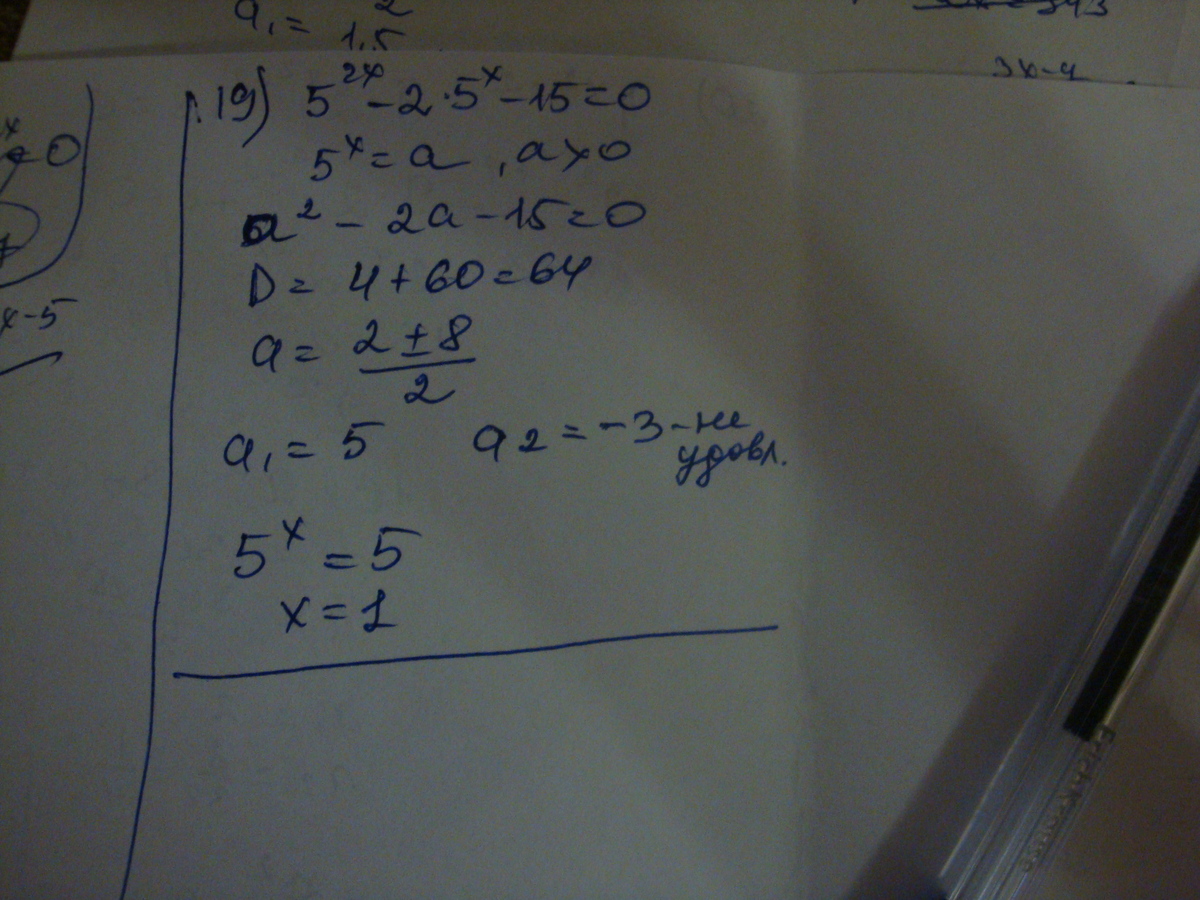 a₁ = 2
1,5
343
3x-4
x
=0
x-5
19) 5^{2x} - 2·5^x - 15 = 0
5^x = a , a>0
a² - 2a - 15 = 0
D = 4 + 60 = 64
a = \frac{2 ± 8}{2}
a₁ = 5 a2 = -3 - не
удовл.
5^x = 5
x = 1
Erich Krause